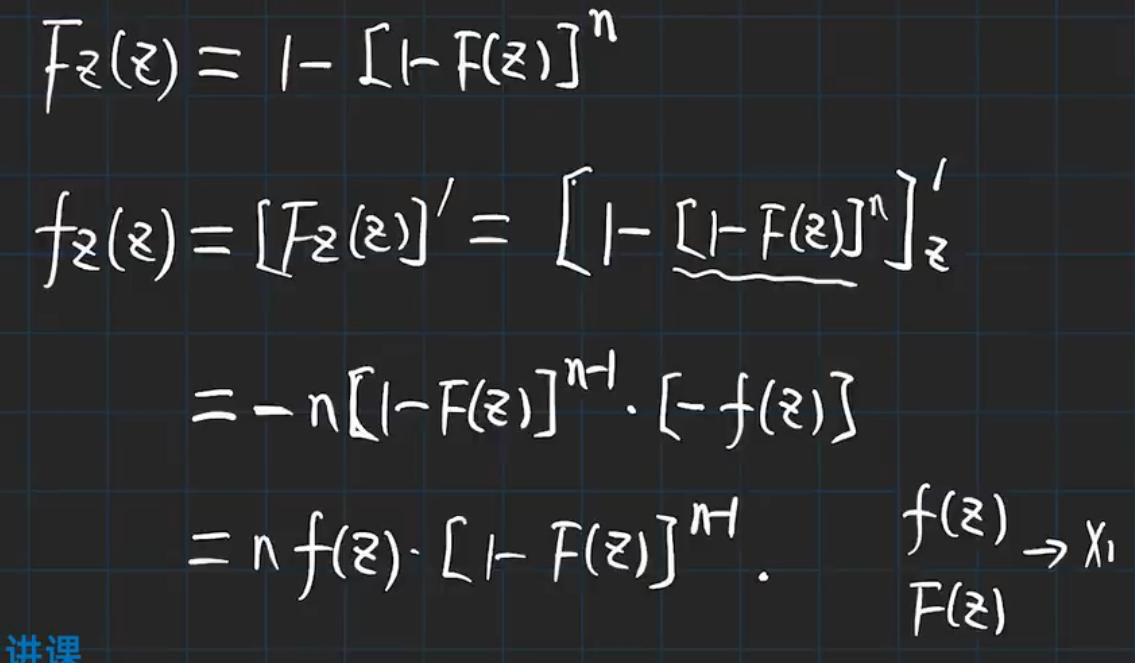 F_Z(z) = 1 - [1 - F(z)]^n
f_Z(z) = [F_Z(z)]' = [1 - [1 - F(z)]^n]'_z
= -n[1 - F(z)]^{n-1} · [-f(z)]
= n f(z) · [1 - F(z)]^{n-1}.
f(z)
→ X_1
F(z)
讲课